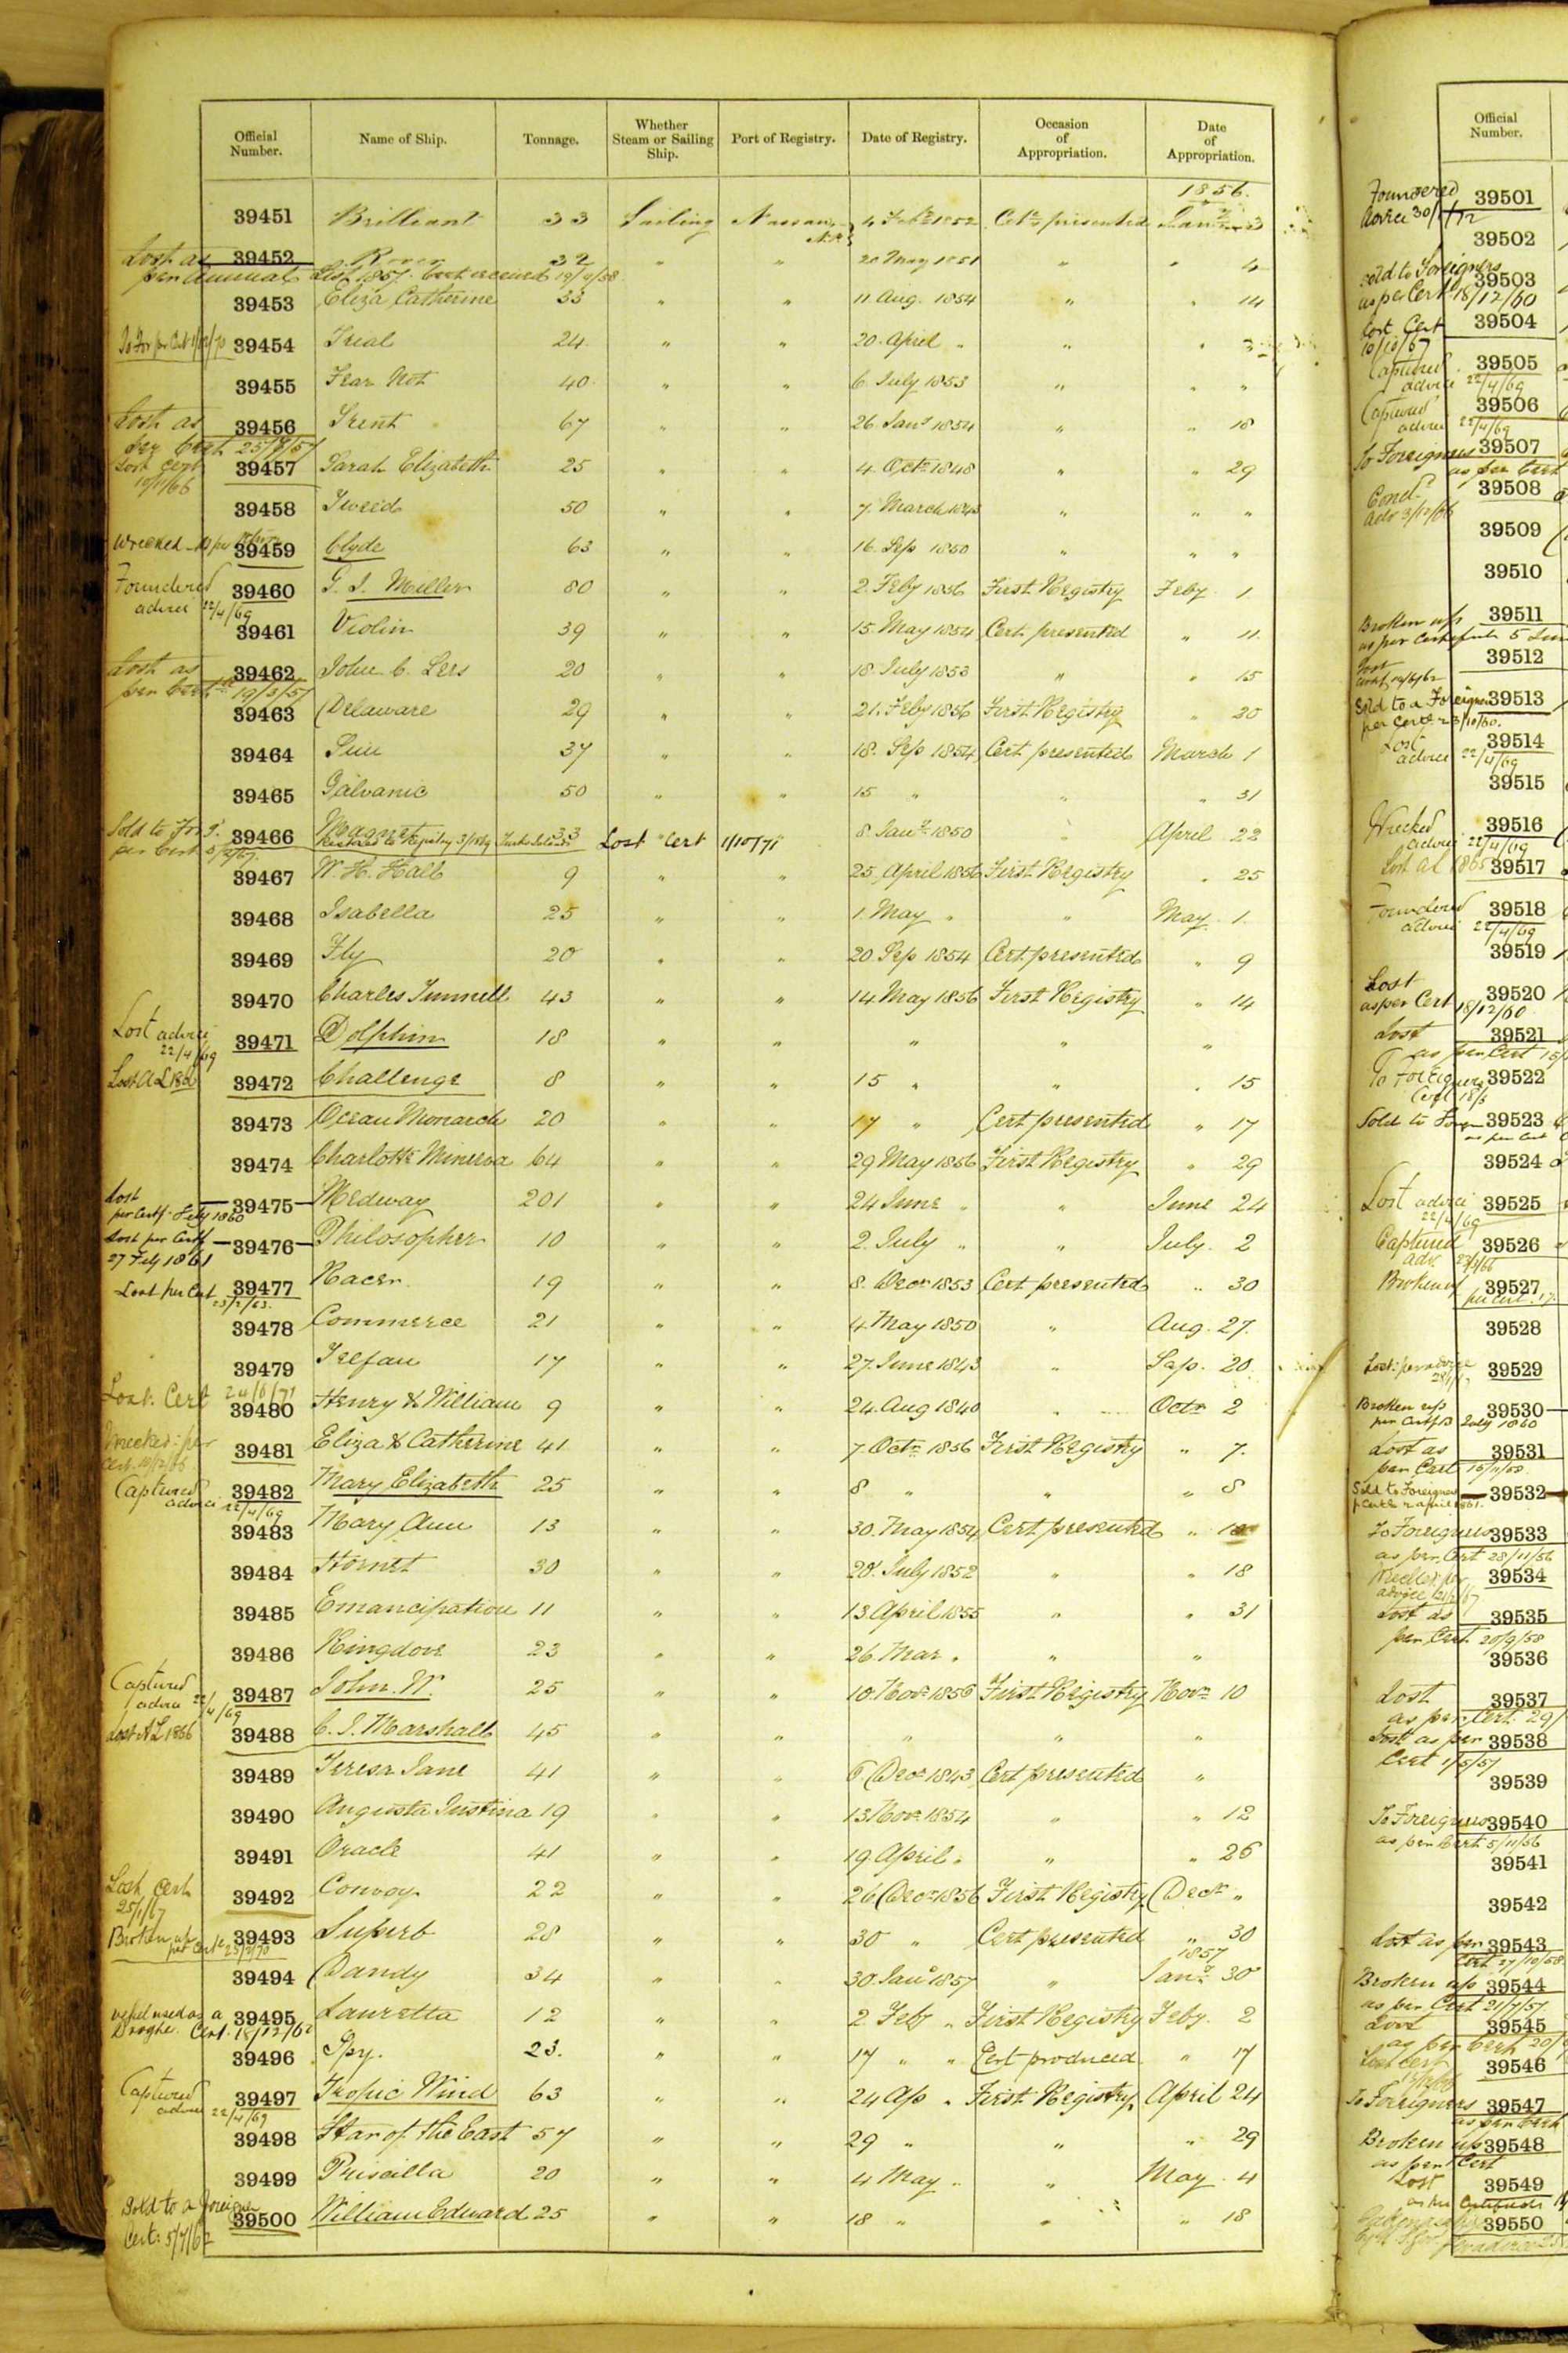 Official Number. Name of Ship. Tonnage. Whether Steam or Sailing Ship. Port of Registry. Date of Registry. Occasion of Appropriation. Date of Appropriation.
1856.
39451 Brilliant 33 Sailing Nassau 4 1852 Cert presented Jany 3
Lost as 39452 32 " " 20 May 1851 " 4
per Annual List 1857. Cert received
39453 Eliza Catherine 33 " " 11 Aug. 1854 " " 14
39454 Trial 24 " " 20 April " " "
39455 Fear Not 40 " " 6 July 1853 " " "
Lost as 39456 Trent 67 " " 26 Jany 1854 " " 18
per Cert 25/8/57
Lost Cert 39457 Sarah Elizabeth 25 " " 4 Octr 1848 " " 29
10/11/66
39458 Tweed 50 " " 7 March " " "
Wrecked 39459 Clyde 63 " " 16 Sep 1850 " " "
Foundered 39460 G. I. Miller 80 " " 2 Feby 1856 First Registry Feby 1
advice 22/4/69
39461 Violin 39 " " 15 May 1854 Cert presented " 11
Lost as 39462 John C. Lees 20 " " 18 July 1853 " " 15
per Cert 19/3/57
39463 Delaware 29 " " 21 Feby 1856 First Registry " 20
39464 37 " " 18 Sep 1854 Cert presented March 1
39465 Galvanic 50 " " 15 " " " 31
Sold to 39466 Magnet 33 Lost Cert 1/10/71 8 Jany 1850 " April 22
39467 W. H. Hall 9 " " 25 April 1856 First Registry " 25
39468 Isabella 25 " " 1 May " " May 1
39469 Fly 20 " " 20 Sep 1854 Cert presented " 9
39470 Charles Tunnell 43 " " 14 May 1856 First Registry " 14
Lost advice 39471 Dolphin 18 " " " " "
22/4/69
39472 Challenge 8 " " 15 " " " 15
39473 Ocean Monarch 20 " " 17 " Cert presented " 17
39474 Charlotte Minerva 64 " " 29 May 1856 First Registry " 29
Lost 39475 Medway 201 " " 24 June " " June 24
per Certf. Feby 1860
Lost per Certf 39476 Philosopher 10 " " 2 July " " July 2
27 Feby 1861
Lost per Cert 39477 Racer 19 " " 8 Decr 1853 Cert presented " 30
23/2/63.
39478 Commerce 21 " " 4 May 1850 " Aug. 27
39479 17 " " 27 June 1843 " Sep. 20
Lost: Cert 24/6/71
39480 Henry & William 9 " " 24 Aug 1840 " Octr 2
Wrecked: per 39481 Eliza & Catherine 41 " " 7 Octr 1856 First Registry " 7
Captured 39482 Mary Elizabeth 25 " " 8 " " " 8
advice 22/4/69
39483 Mary Ann 13 " " 30 May 1854 Cert presented "
39484 Hornet 30 " " 20 July 1852 " " 18
39485 Emancipation 11 " " 13 April 1855 " " 31
39486 Kingdove 23 " " 26 Mar " " "
Captured 39487 John. W. 25 " " 10 Novr 1856 First Registry Novr 10
advice 22/4/69
Lost A L 1866 39488 C. I. Marshall 45 " " " " "
39489 Teresa Jane 41 " " 6 Decr 1843 Cert presented "
39490 Augusta Justina 19 " " 13 Novr 1854 " " 12
39491 Oracle 41 " " 19 April " " " 26
Lost Cert 39492 Convoy 22 " " 26 Decr 1856 First Registry Decr "
25/1/67
Broken up 39493 Superb 28 " " 30 " Cert presented " 30
per Cert
1857
39494 Dandy 34 " " 30 Jany 1857 " Jany 30
vessel used as a 39495 Lauretta 12 " " 2 Feby " First Registry Feby. 2
Droghe. Cert. 18/12/62
39496 Spy. 23. " " 17 " " Cert produced " 17
Captured 39497 Tropic Wind 63 " " 24 Ap " First Registry April 24
advice 22/4/69
39498 Star of the East 57 " " 29 " " " 29
39499 Priscilla 20 " " 4 May " " May 4
Sold to a foreigner 39500 William Edward 25 " " 18 " " " 18
Cert: 5/7/62
Official Number.
Foundered 39501
advice 30/1/72
39502
Sold to Foreigners 39503
as per Cert 18/12/60
Lost Cert 39504
10/10/67
Captured 39505
advice 22/4/69
Captured 39506
advice 22/4/69
To Foreigners 39507
as per Cert
Cond. 39508
39509
39510
Broken up 39511
Lost 39512
Sold to a Foreigner 39513
per Cert 23/10/60.
Lost 39514
advice 22/4/69
39515
Wrecked 39516
advice 22/4/69
Lost AL 1865 39517
Foundered 39518
advice 22/4/69
39519
Lost 39520
as per Cert 18/12/60
Lost 39521
as per Cert
To Foreigners 39522
Sold to 39523
as per Cert
39524
Lost advice 39525
22/4/69
Captured 39526
Broken up 39527
39528
39529
Broken up 39530
July 1860
Lost as 39531
per Cert 15/11/58
Sold to Foreigners 39532
To Foreigners 39533
as per Cert 28/11/56
39534
Lost as 39535
per Cert 20/9/58
39536
Lost 39537
as per Cert 29/
Lost as per 39538
Cert 1/5/57
39539
To Foreigners 39540
as per Cert 5/11/56
39541
39542
Lost as per 39543
Cert 27/10/58
Broken up 39544
as per Cert 21/7/57
Lost 39545
as per Cert 20/
Lost Cert 39546
To Foreigners 39547
as per Cert
Broken up 39548
as per Cert
Lost 39549
39550